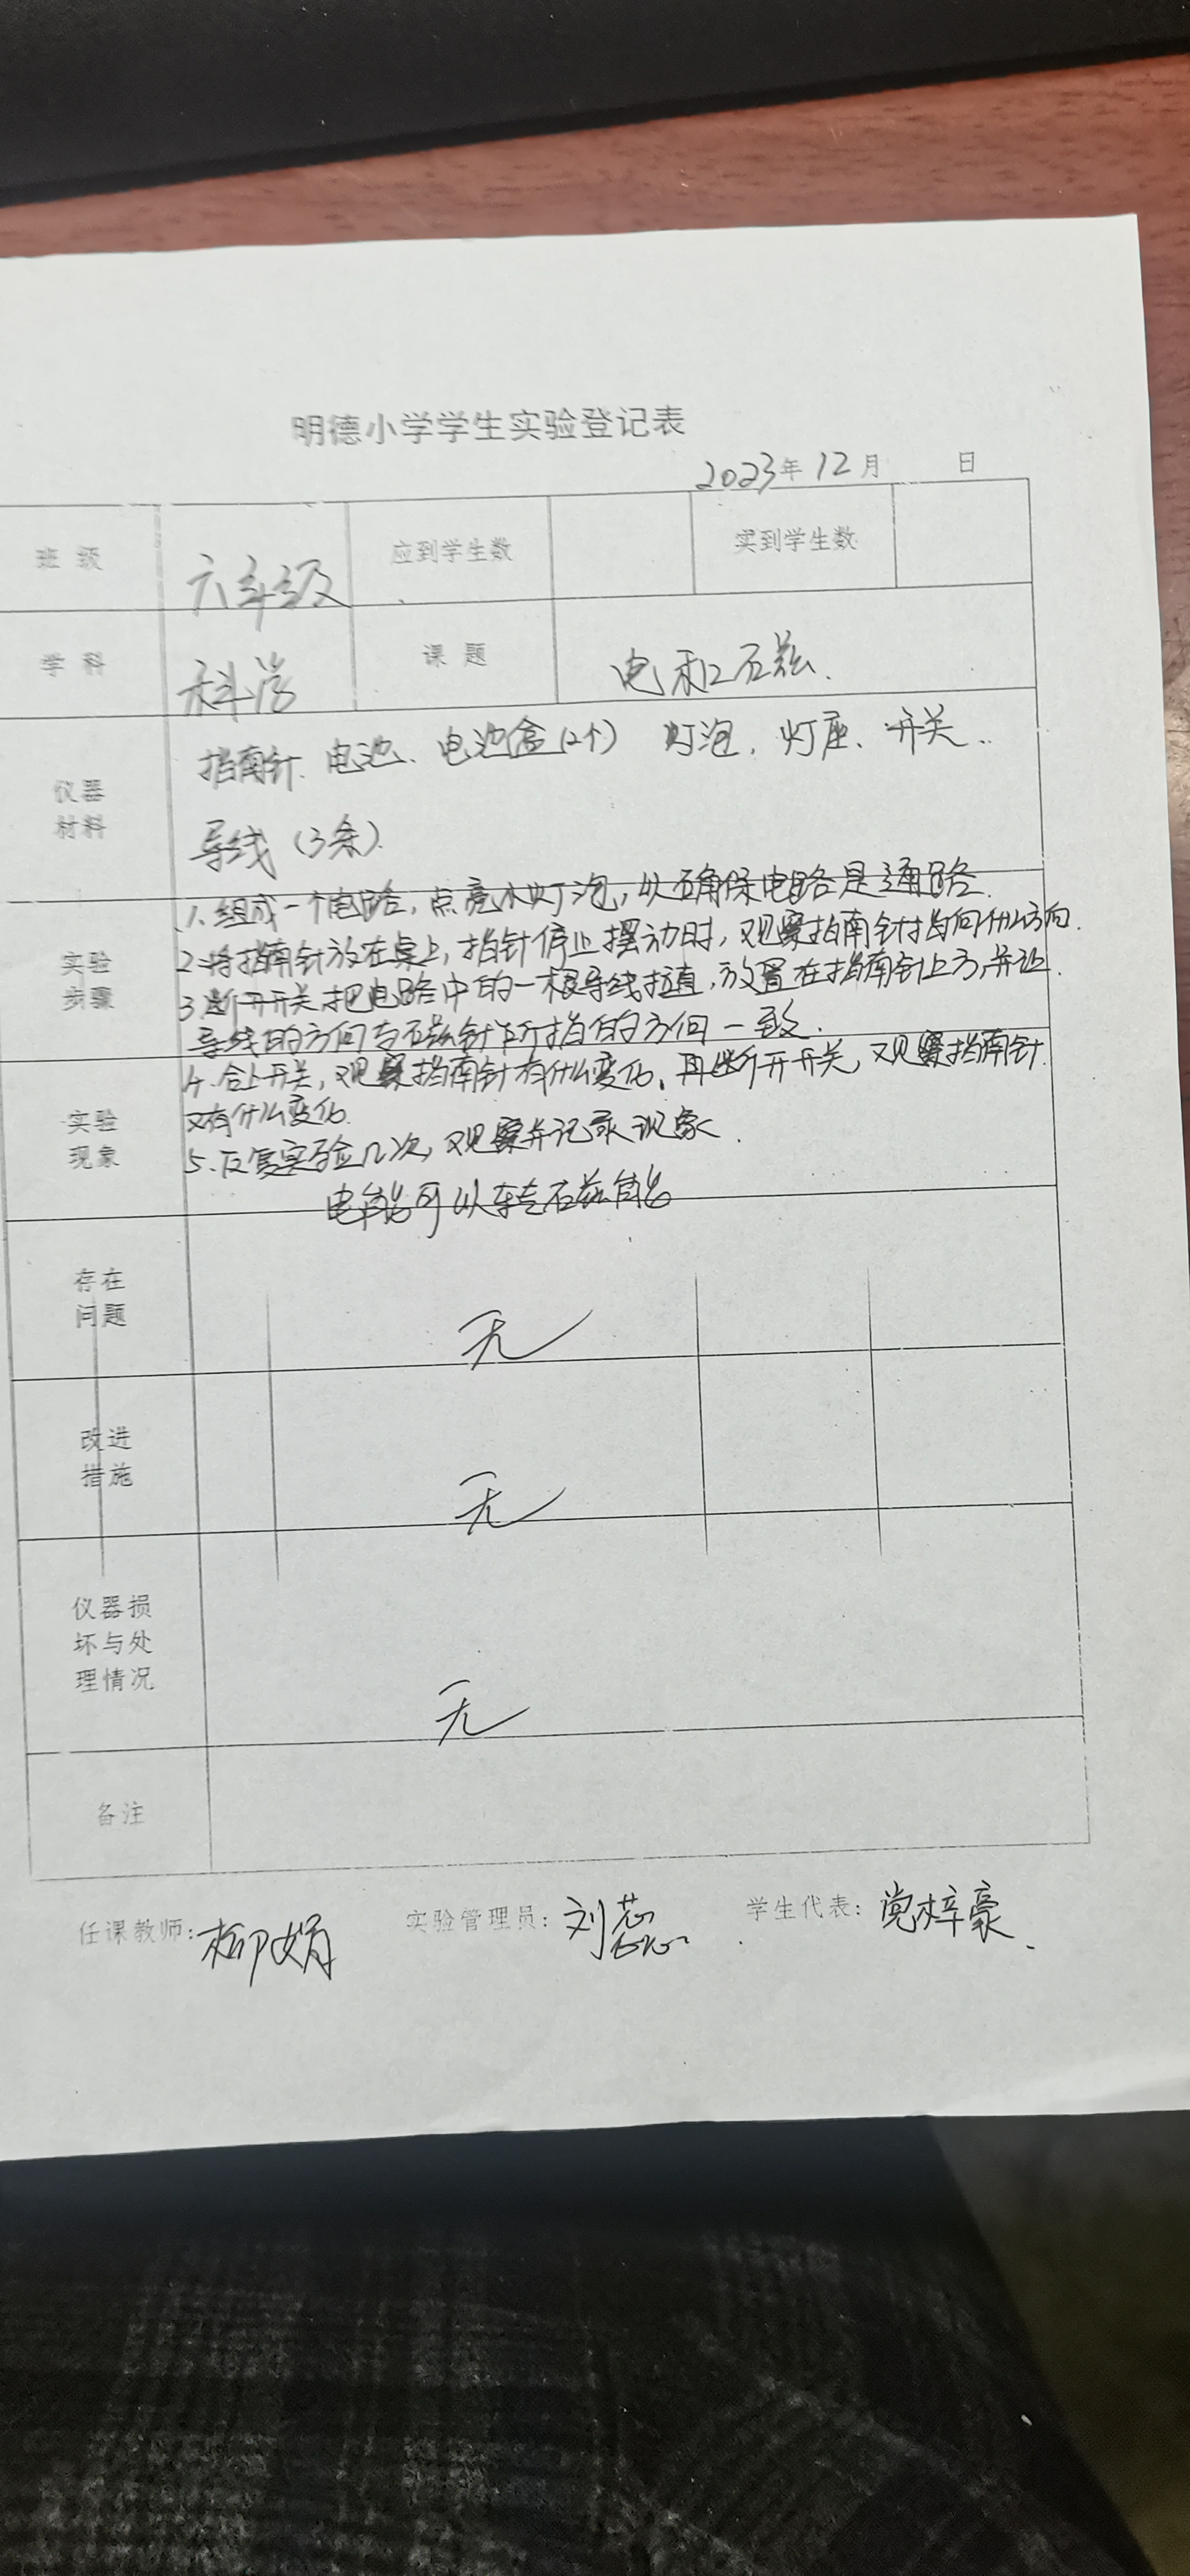 明德小学学生实验登记表
2023年12月 日
班级 六年级 应到学生数 实到学生数
学科 科学 课题 电和磁.
仪器材料 指南针、电池、电池盒(2个) 灯泡、灯座、开关、
导线(3条).
实验步骤
1、组成一个电路,点亮小灯泡,以确保电路是通路.
2.将指南针放在桌上,指针停止摆动时,观察指南针指向什么方向.
3.断开开关,把电路中的一根导线拉直,放置在指南针上方,并让
导线的方向与磁针所指的方向一致.
实验现象
4.合上开关,观察指南针有什么变化,再断开开关,观察指南针
又有什么变化.
5.反复实验几次,观察并记录现象.
电能可以转磁能
存在问题 无
改进措施 无
仪器损坏与处理情况 无
备注
任课教师:柳娟 实验管理员:刘蕊 学生代表:党梓豪.